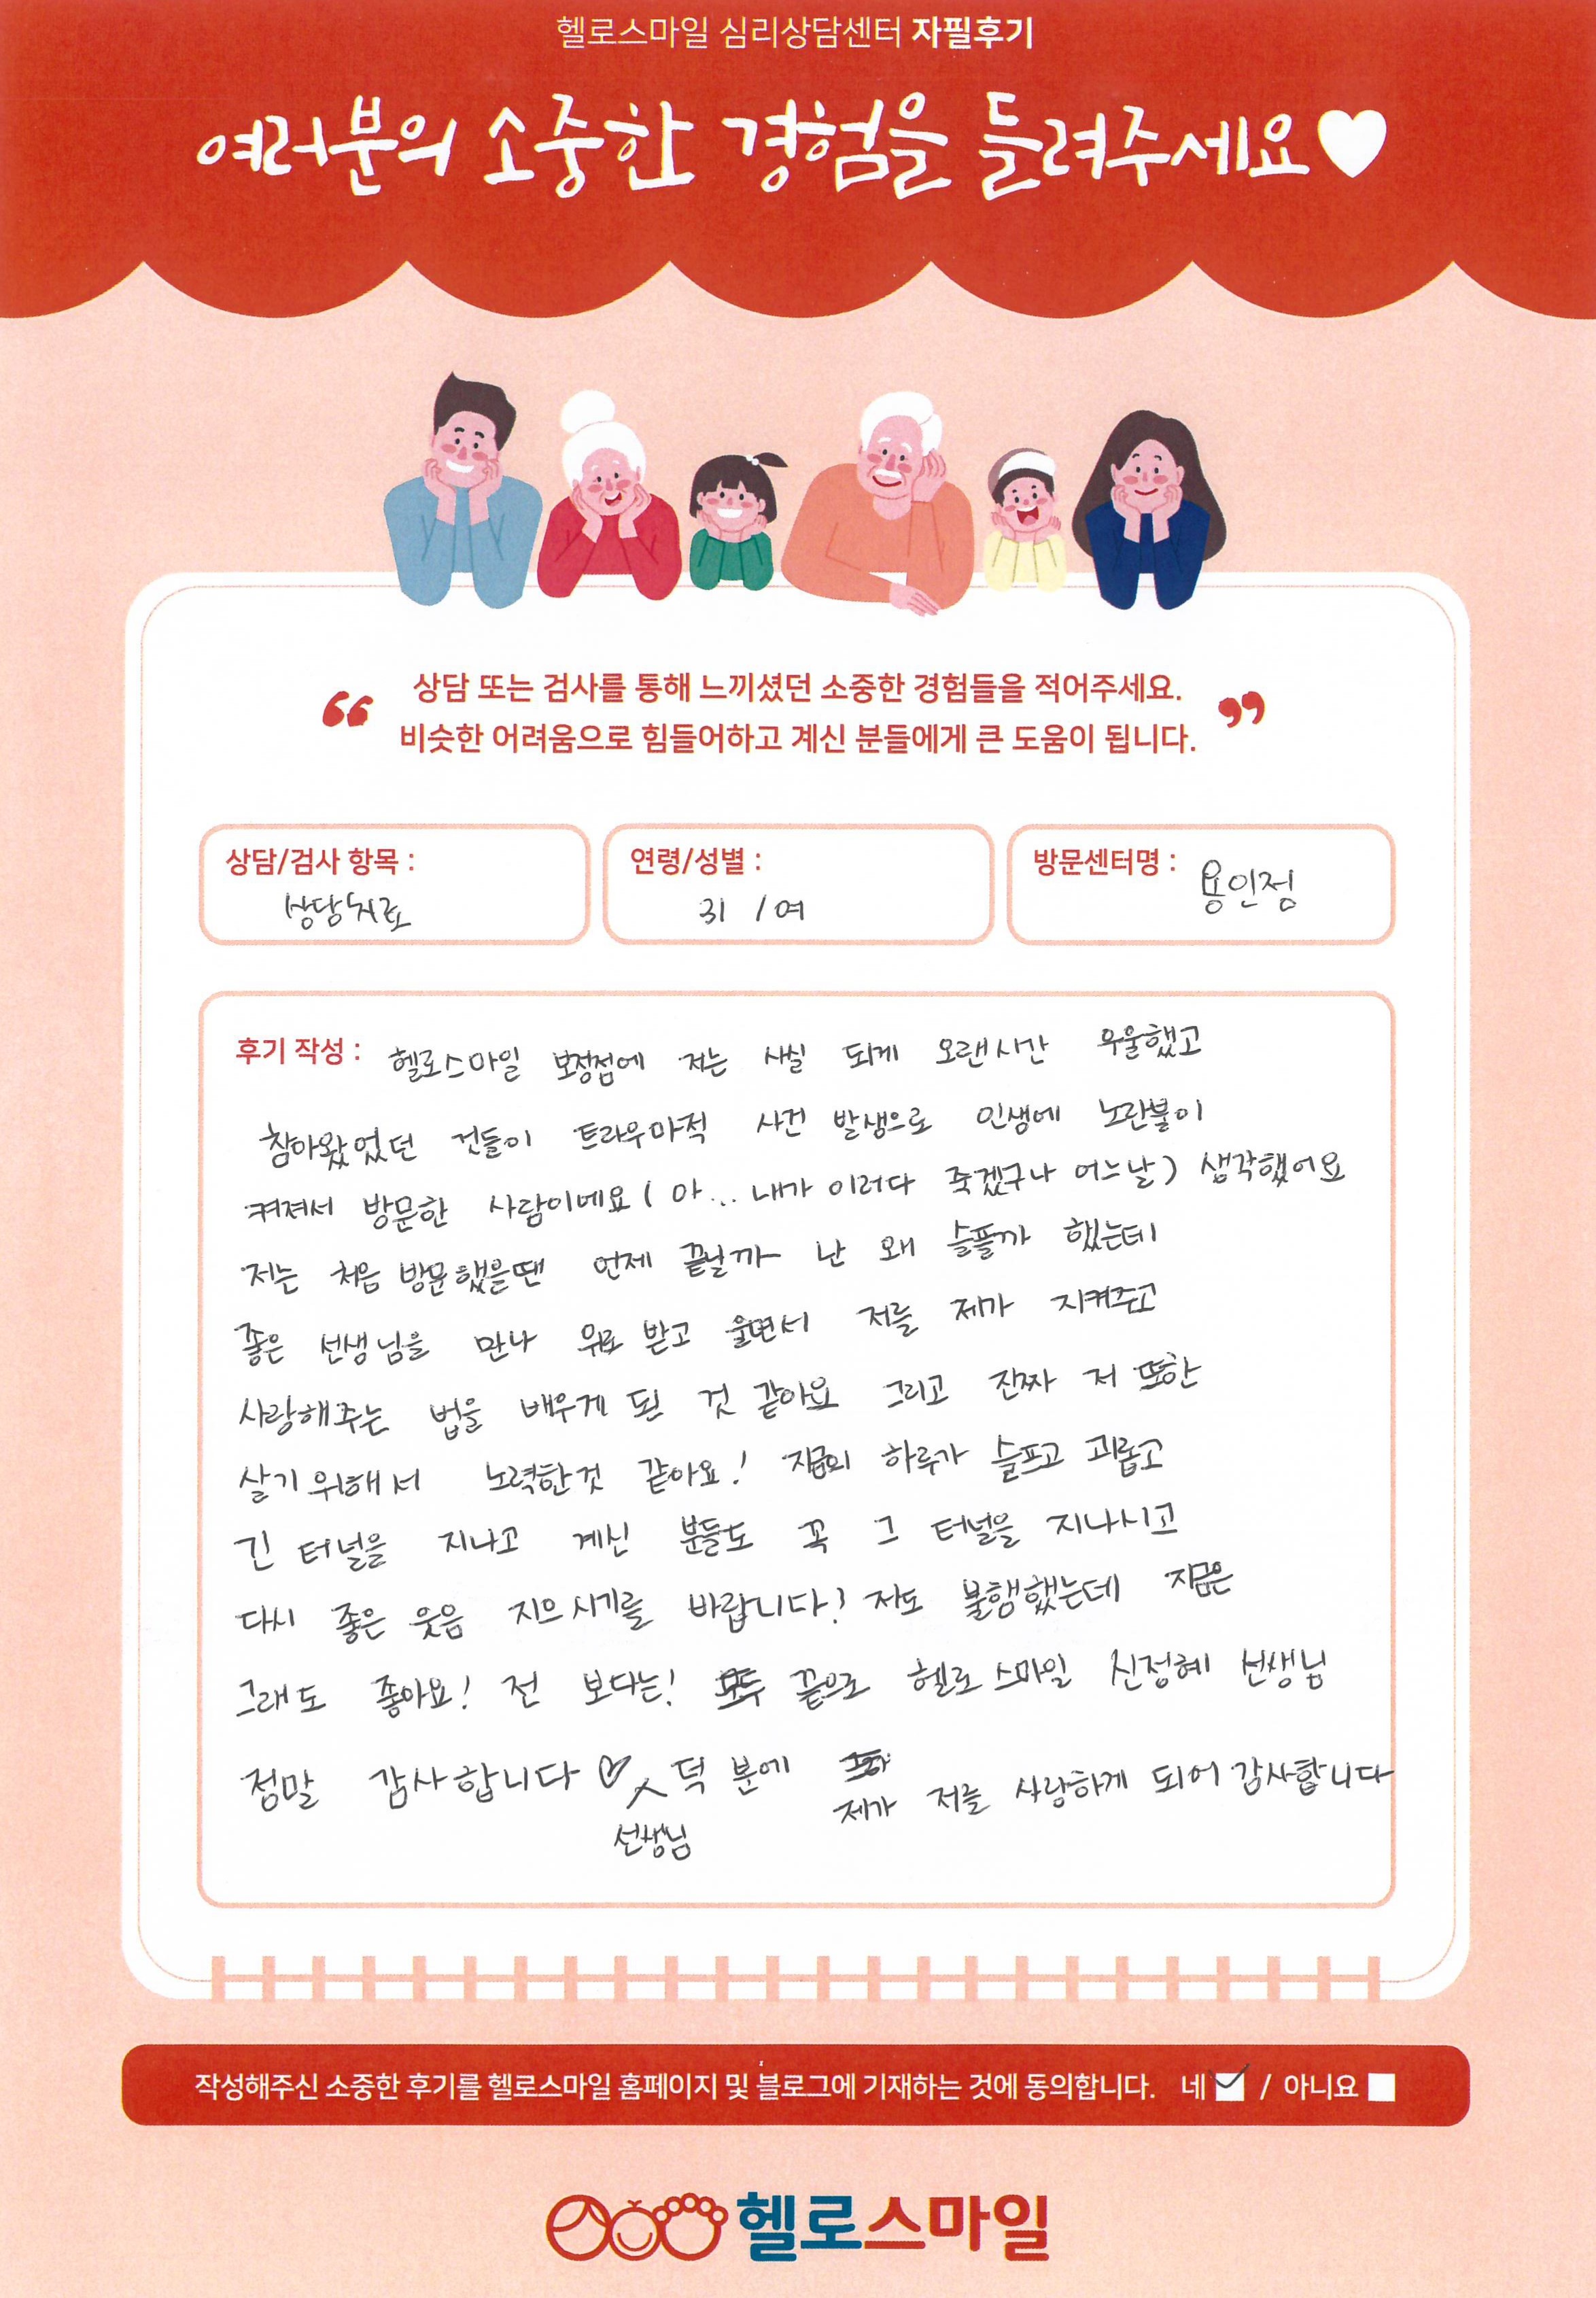 헬로스마일 심리상담센터 자필후기
여러분의 소중한 경험을 들려주세요♥
“ 상담 또는 검사를 통해 느끼셨던 소중한 경험들을 적어주세요.
비슷한 어려움으로 힘들어하고 계신 분들에게 큰 도움이 됩니다. ”
상담/검사 항목 : 상담치료
연령/성별 : 31 / 여
방문센터명 : 용인점
후기 작성 : 헬로스마일 보정점에 저는 사실 되게 오랜시간 우울했고
참아왔었던 것들이 트라우마적 사건 발생으로 인생에 노란불이
켜져서 방문한 사람이에요 ( 아... 내가 이러다 죽겠구나 어느날) 생각했어요
저는 처음 방문했을땐 언제 끝날까 난 왜 슬플까 했는데
좋은 선생님을 만나 위로 받고 울면서 저를 제가 지켜주고
사랑해주는 법을 배우게 된 것 같아요 그리고 진짜 저 또한
살기 위해서 노력한것 같아요! 지금의 하루가 슬프고 괴롭고
긴 터널을 지나고 계신 분들도 꼭 그 터널을 지나시고
다시 좋은 웃음 지으시기를 바랍니다! 저도 불행했는데 지금은
그래도 좋아요! 전 보다는! 끝으로 헬로스마일 신정혜 선생님
정말 감사합니다 ♡ 선생님 덕분에 제가 저를 사랑하게 되어 감사합니다
작성해주신 소중한 후기를 헬로스마일 홈페이지 및 블로그에 기재하는 것에 동의합니다. 네 ☑ / 아니요 □
헬로스마일